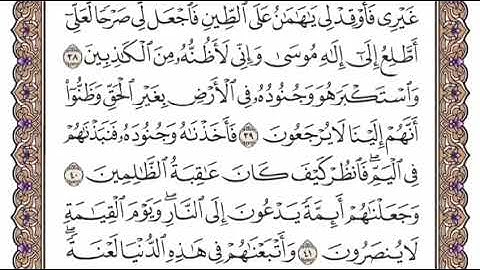 غَيْرِي فَأَوْقِدْ لِي يَٰهَٰمَٰنُ عَلَى ٱلطِّينِ فَٱجْعَل لِّي صَرْحًا لَّعَلِّيٓ
أَطَّلِعُ إِلَىٰٓ إِلَٰهِ مُوسَىٰ وَإِنِّي لَأَظُنُّهُۥ مِنَ ٱلْكَٰذِبِينَ ٣٨
وَٱسْتَكْبَرَ هُوَ وَجُنُودُهُۥ فِي ٱلْأَرْضِ بِغَيْرِ ٱلْحَقِّ وَظَنُّوٓا۟
أَنَّهُمْ إِلَيْنَا لَا يُرْجَعُونَ ٣٩ فَأَخَذْنَٰهُ وَجُنُودَهُۥ فَنَبَذْنَٰهُمْ
فِي ٱلْيَمِّ ۖ فَٱنظُرْ كَيْفَ كَانَ عَٰقِبَةُ ٱلظَّٰلِمِينَ ٤٠
وَجَعَلْنَٰهُمْ أَئِمَّةً يَدْعُونَ إِلَى ٱلنَّارِ ۖ وَيَوْمَ ٱلْقِيَٰمَةِ
لَا يُنصَرُونَ ٤١ وَأَتْبَعْنَٰهُمْ فِي هَٰذِهِ ٱلدُّنْيَا لَعْنَةً ۖ